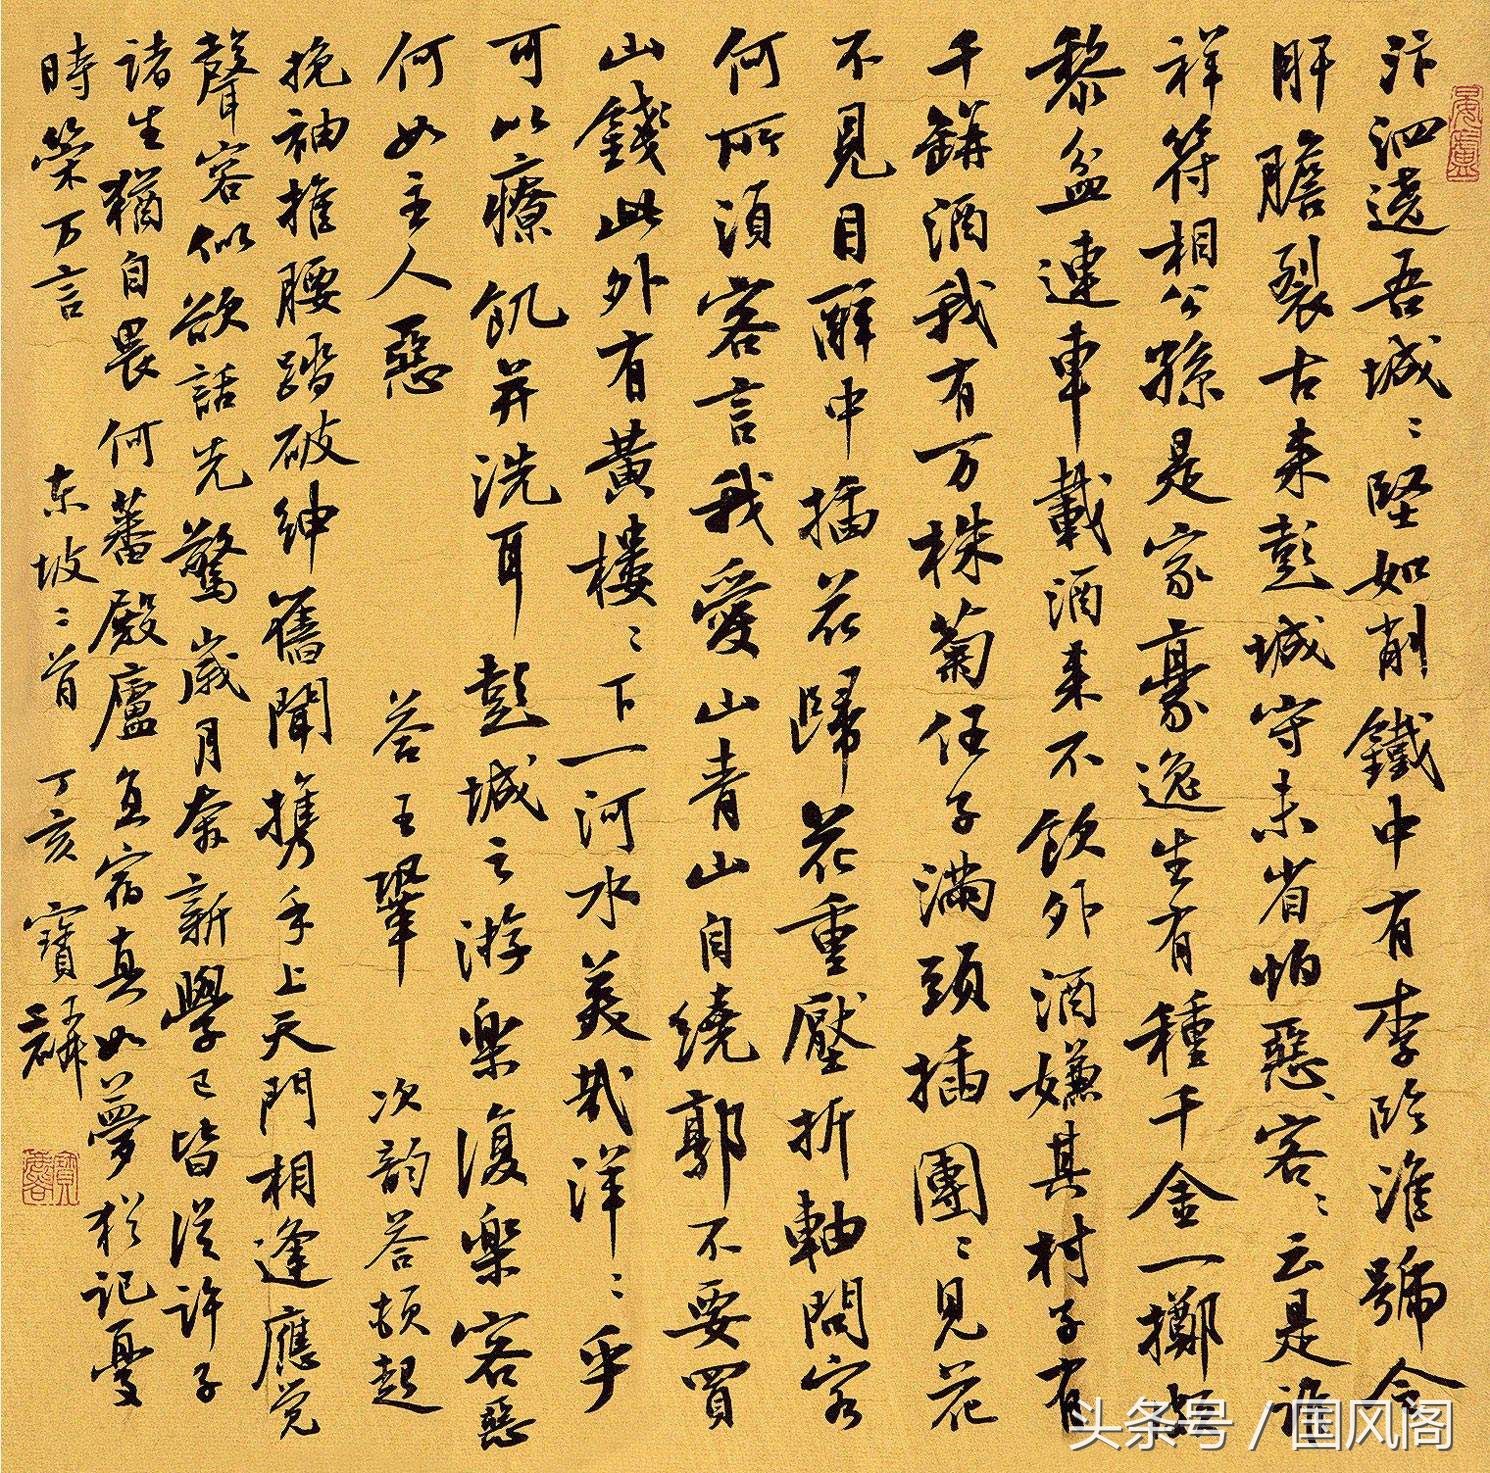 汴泗遶吾城〻堅如削鐵中有李臨淮號令
肝膽裂古来彭城守未省怕惡客〻云是誰
祥符相公孫是家豪逸生有種千金一擲頗
黎盆連車載酒来不飲外酒嫌其村子有
千缾酒我有万株菊任子滿頭插團〻見花
不見目醉中插花歸花重壓折軸問客
何所須客言我愛山青山自繞郭不要買
山錢此外有黃樓〻下一河水美哉洋〻乎
可以療飢并洗耳彭城之游樂復樂客惡
何如主人惡 答王鞏 次韵答頓起
挽袖推腰踏破紳舊聞攜手上天門相逢應覚
聲容似欲話先驚歲月奔新學已皆從許子
諸生猶自畏何蕃殿廬直宿真如夢猶記憂
時策万言 东坡二首 丁亥 寶麟
头条号 / 国风阁